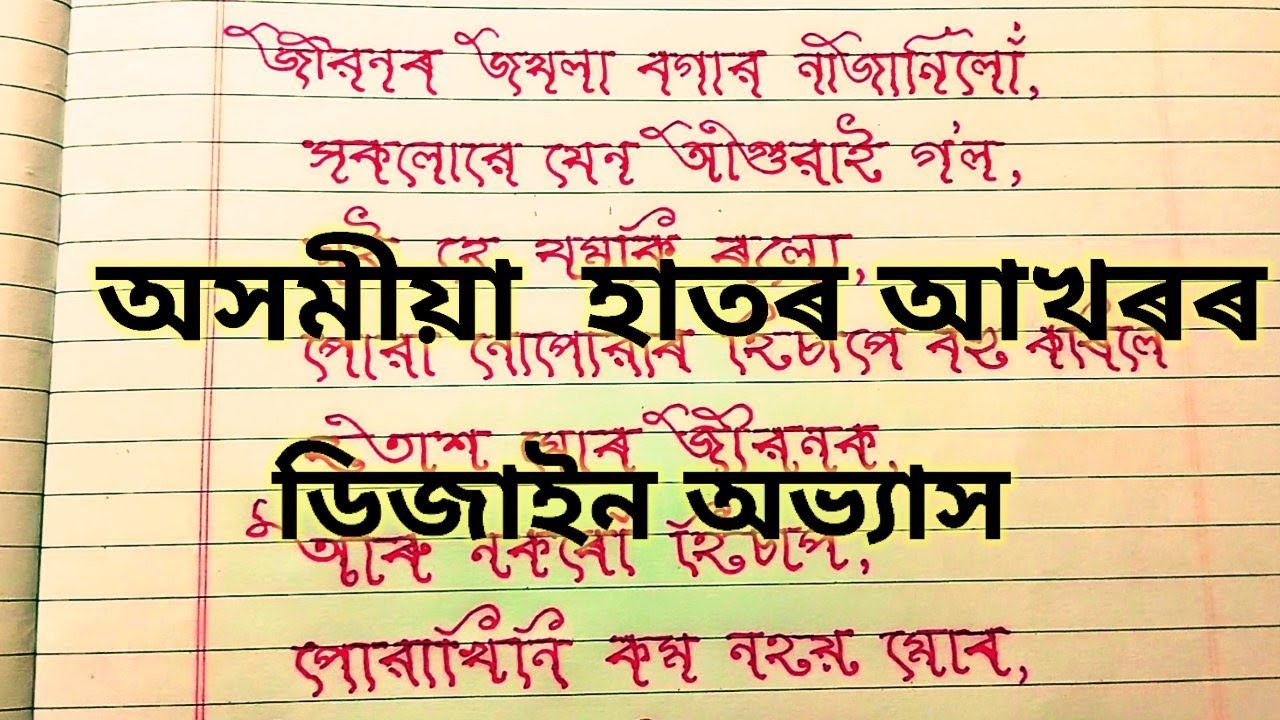 জীৱনৰ জখলা বগাব নাজানিলোঁ,
সকলোৱে যেন আগুৱাই গ'ল,
হে থমকি ৰলো,
অসমীয়া হাতৰ আখৰৰ
পোৱা নোপোৱাৰ হিচাপে বহু কৰিলে
মোৰ জীৱনক
ডিজাইন অভ্যাস
আৰু নকৰোঁ হিচাপ,
পোৱাখিনি কম নহয় মোৰ,